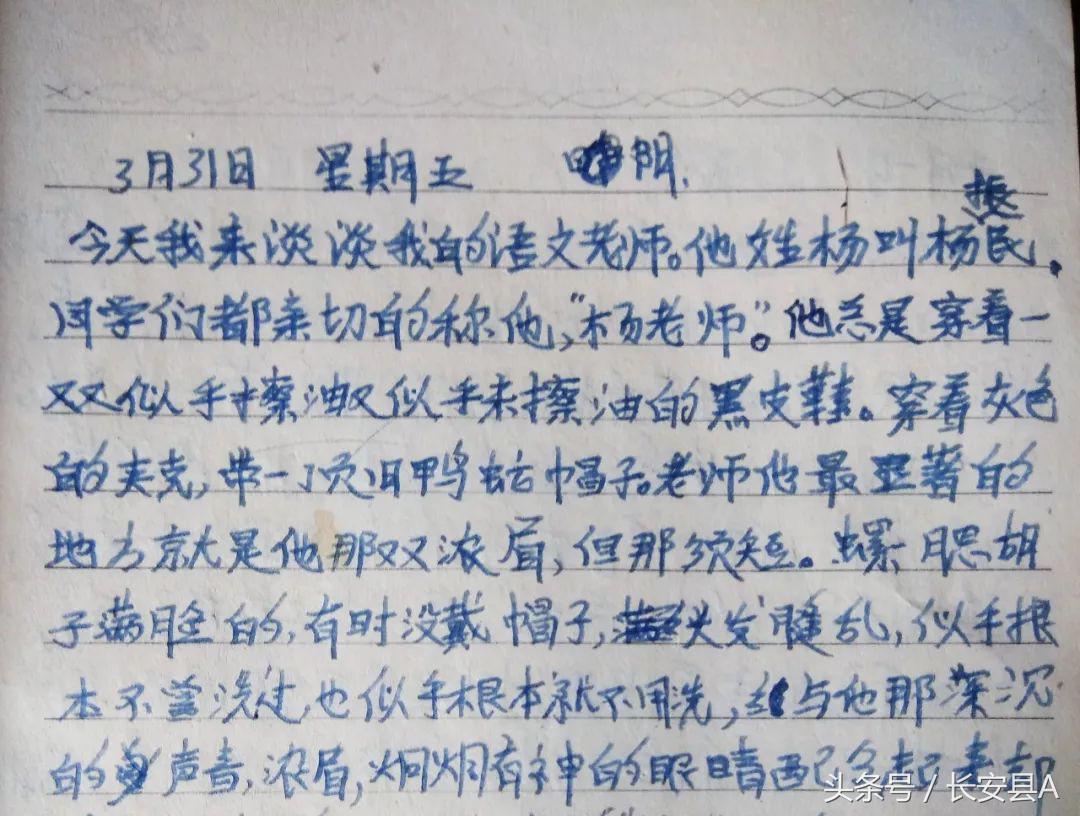 3月31日 星期五 阴.
今天我来谈谈我的语文老师。他姓杨叫杨振民.
同学们都亲切的称他,"杨老师"。他总是穿着一
双似乎擦油又似乎未擦油的黑皮鞋。穿着灰色
的夹克,带一顶旧鸭蛇帽子。老师他最显著的
地方就是他那双浓眉,但那须短。螺腮胡
子满脸的,有时没戴帽子,头发蓬乱,似乎根
本不曾洗过,也似乎根本就不用洗,与他那深沉
的声音,浓眉,炯炯有神的眼睛配合起来却
头条号 / 长安县A